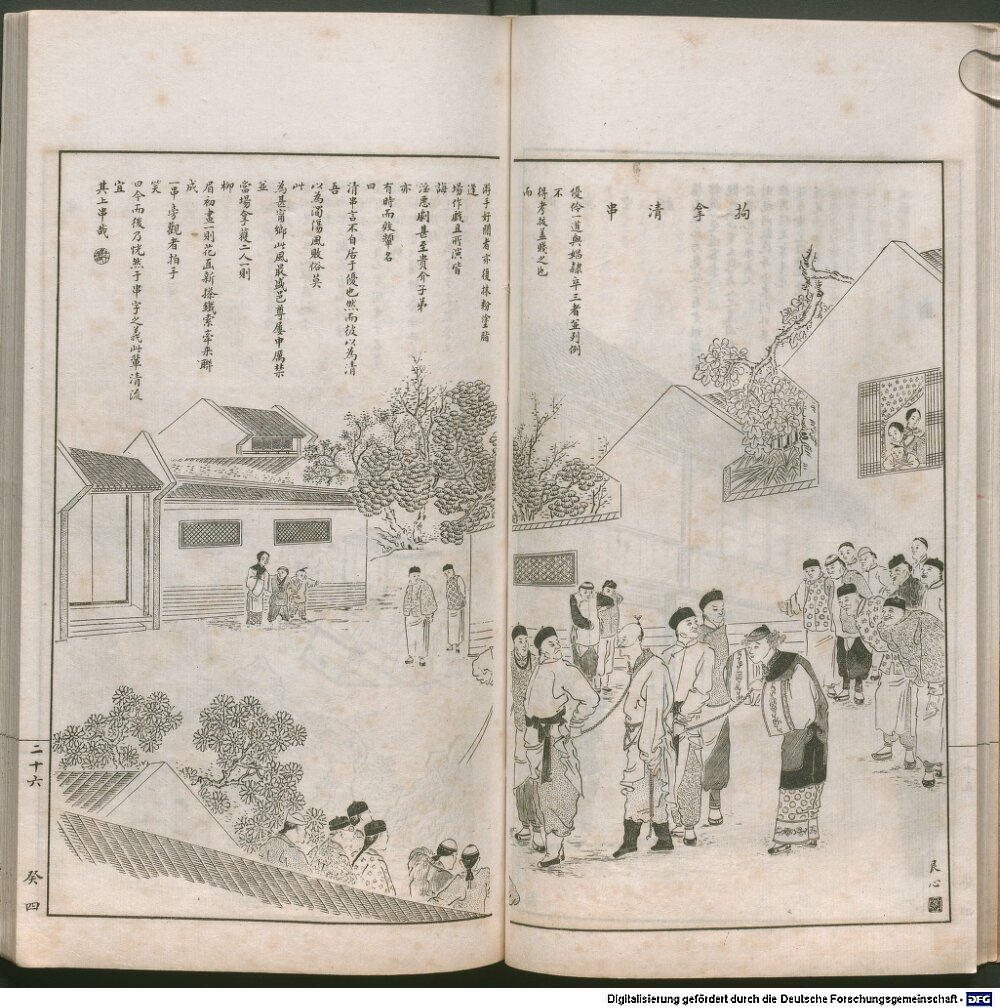 拘拿清串
優伶一道與娼隸卒三者並列例
不
得考拔蓋賤之也
而
游手好閒者亦復抹粉塗脂
逢
場作戲且所演皆
誨
淫惡劇甚至貴介子弟
亦
有時而效顰名
曰
清串言不自居于優也然而彼以為清
吾
以為濁傷風敗俗莫
此
為甚甯鄉此風最盛邑尊屢申厲禁
並
當場拿獲二人一則
柳
眉初畫一則花面新搽鐵索牽來聯
成
一串旁觀者拍手
笑
曰今而後乃恍然于串字之義此輩清流
宜
其上串哉
二十六
癸四
民心
Digitalisierung gefördert durch die Deutsche Forschungsgemeinschaft - DFG